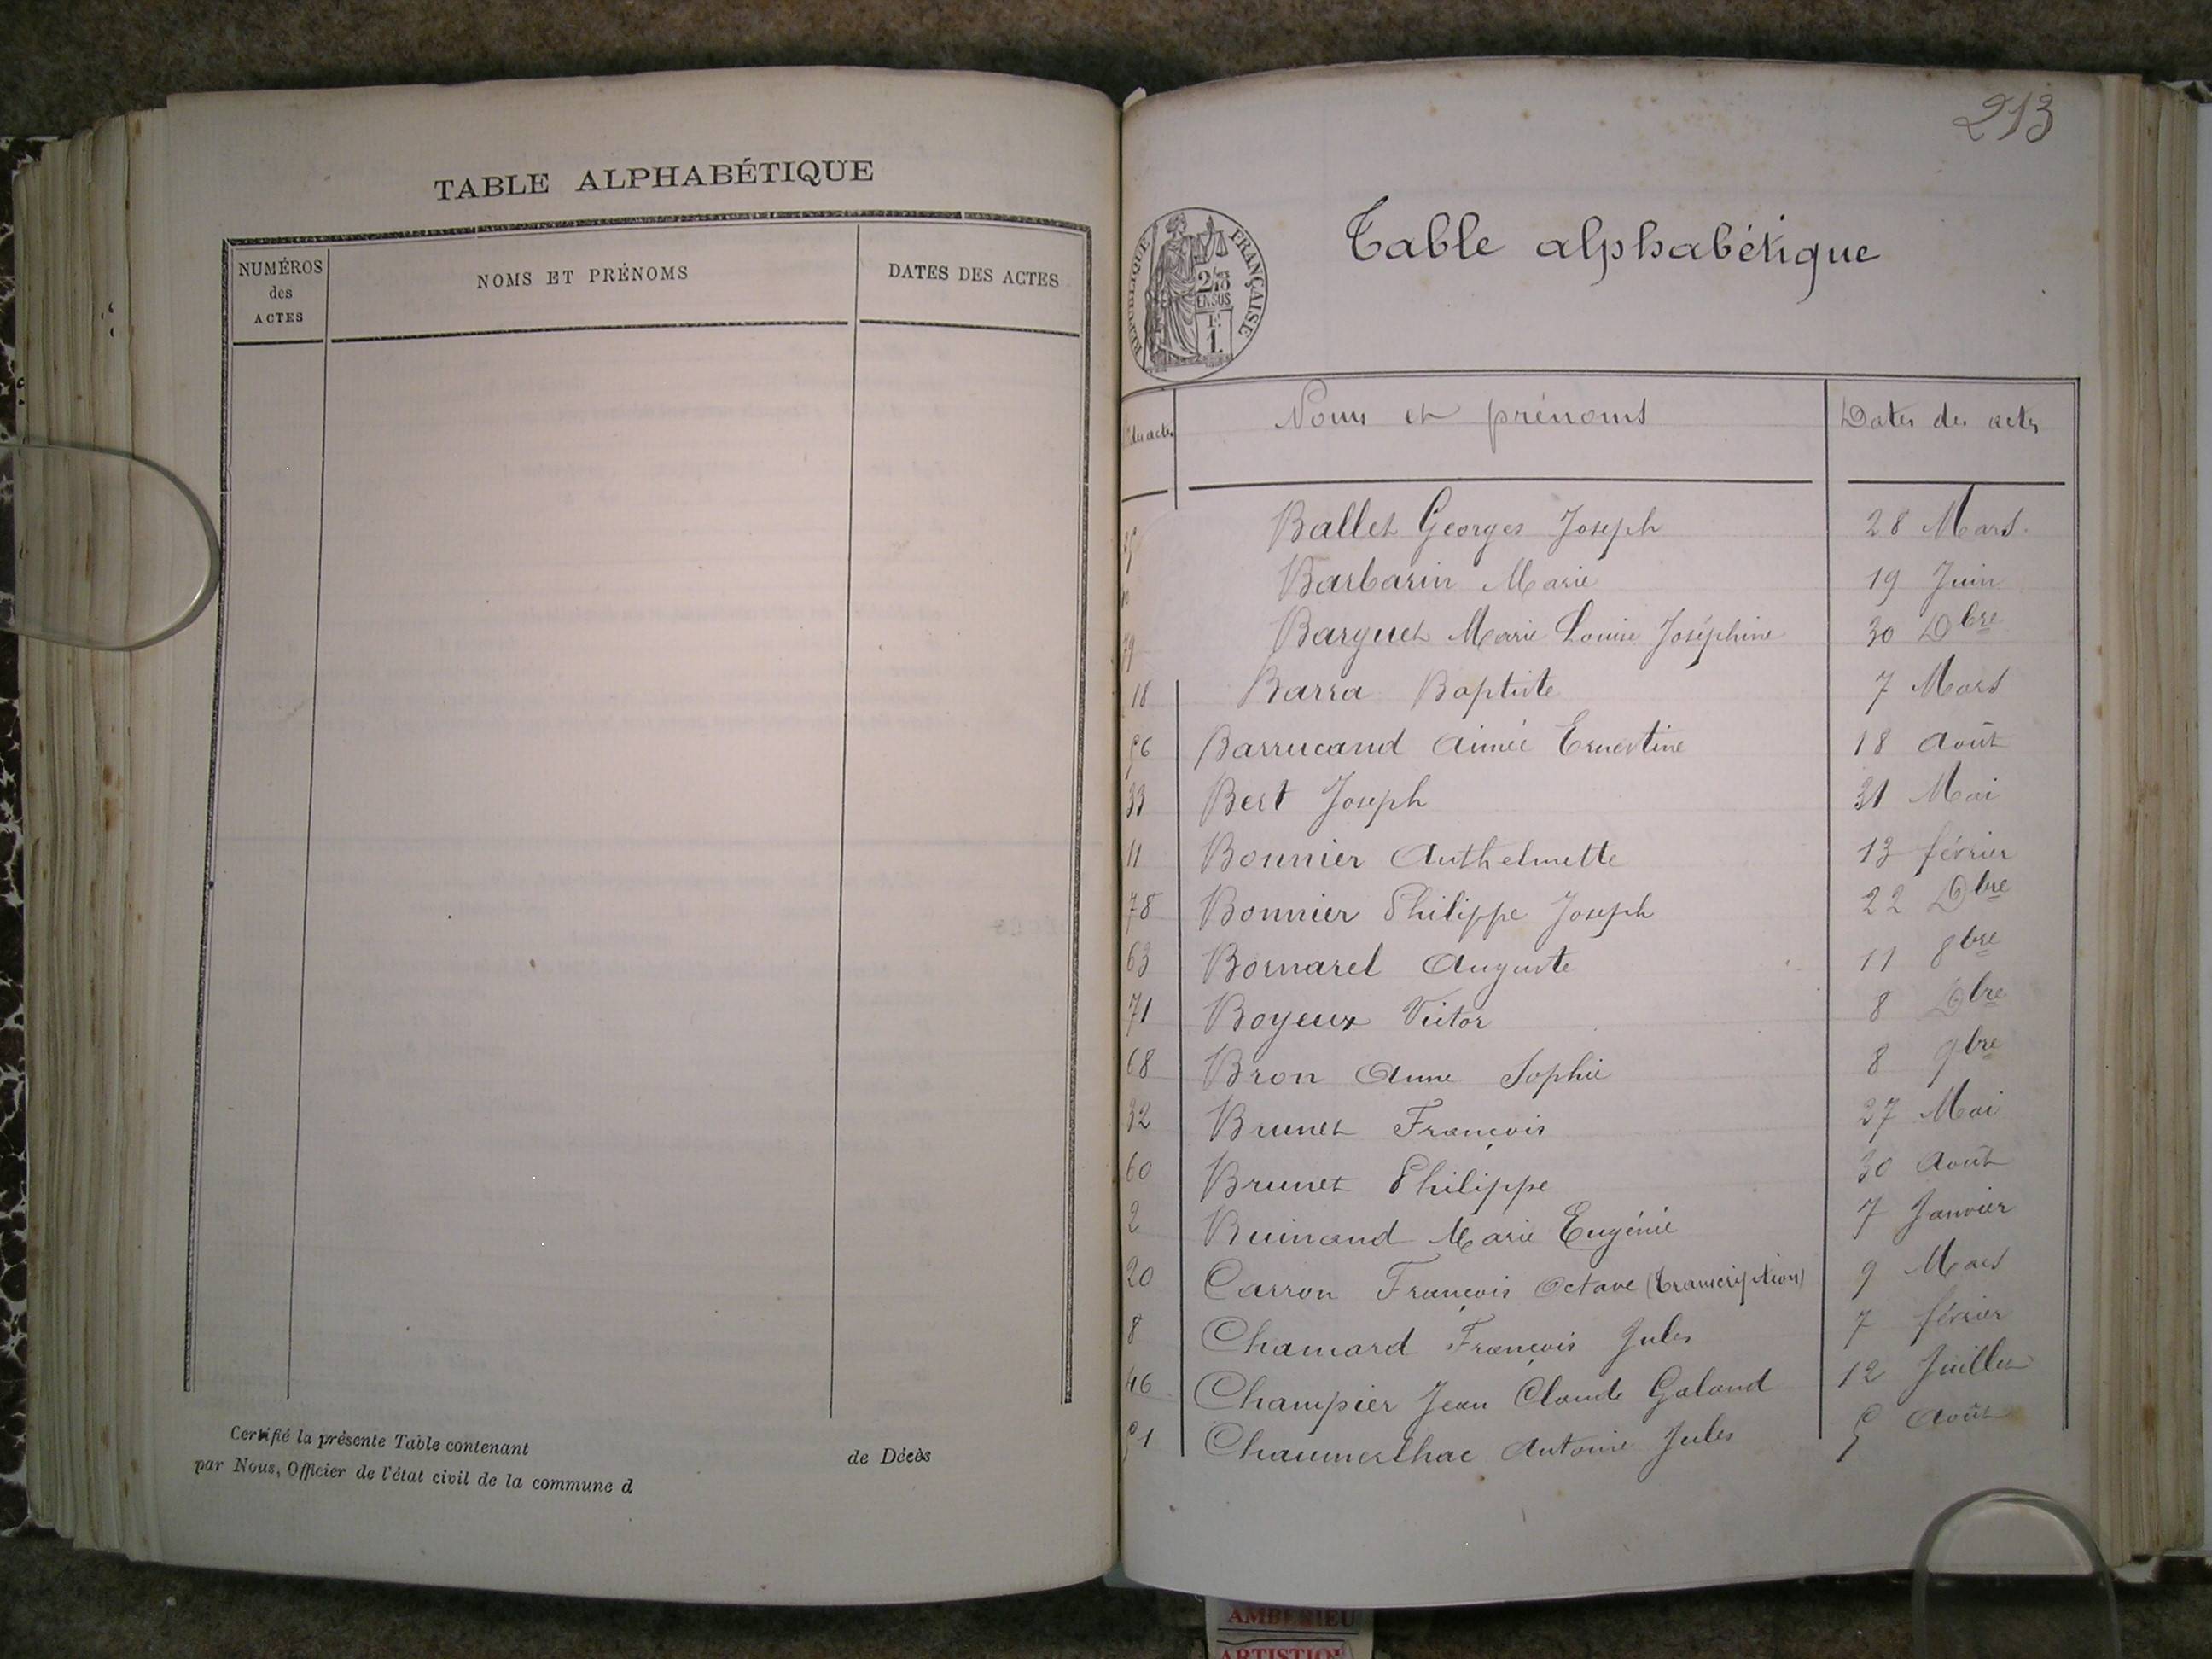 TABLE ALPHABÉTIQUE
NUMÉROS
des
ACTES
NOMS ET PRÉNOMS
DATES DES ACTES
Certifié la présente Table contenant de Décès
par Nous, Officier de l'état civil de la commune d
213
Table alphabétique
RÉPUBLIQUE FRANÇAISE
2/10
EN SUS
1.
des actes Noms et prénoms Dates des actes
Ballet Georges Joseph 28 Mars
Barbarin Marie 19 Juin
79 Barguet Marie Louise Joséphine 30 Dbre
18 Barra Baptiste 7 Mars
56 Barrucand Aimée Ernestine 18 Août
33 Bert Joseph 31 Mai
11 Bonnier Anthelmette 13 février
78 Bonnier Philippe Joseph 22 Dbre
63 Bornarel Auguste 11 8bre
71 Boyeux Victor 8 Dbre
68 Bron Anne Sophie 8 9bre
32 Brunet François 27 Mai
60 Brunet Philippe 30 Août
2 Buinand Marie Eugénie 7 Janvier
20 Carron François Octave (transcription) 9 Mars
8 Chamard François Jules 7 février
46 Champier Jean Claude Galand 12 Juillet
51 Chaumerlhac Antoine Jules 5 Août
AMBERIEU